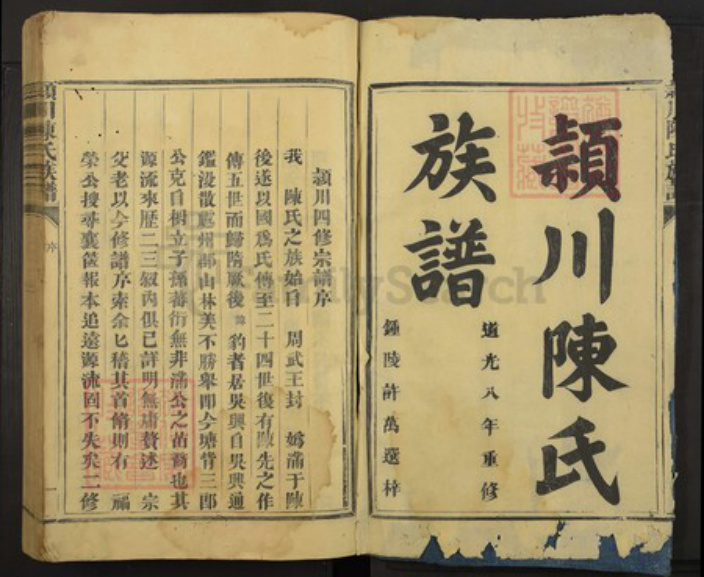 潁川陳氏
族譜
道光八年重修
鍾陵許萬選梓
潁川四修宗譜序
我　陳氏之族始自　周武王封　媯滿于陳
後遂以國爲氏傳至二十四世復有陳先之作
傳五世而歸隋厥後　豹者居吳興自吳興通
鑑没散處州郡山林美不勝舉即今塘背三郎
公克自樹立子孫蕃衍無非滿公之苗裔也其
源流來歷一二三叙內俱已詳明無庸贅述　宗
父老以今修譜序索余匕稽其首脩則有　福
榮公搜尋襄篋報本追遠源流固不失矣二修
潁川陳氏族譜
序
FamilySearch